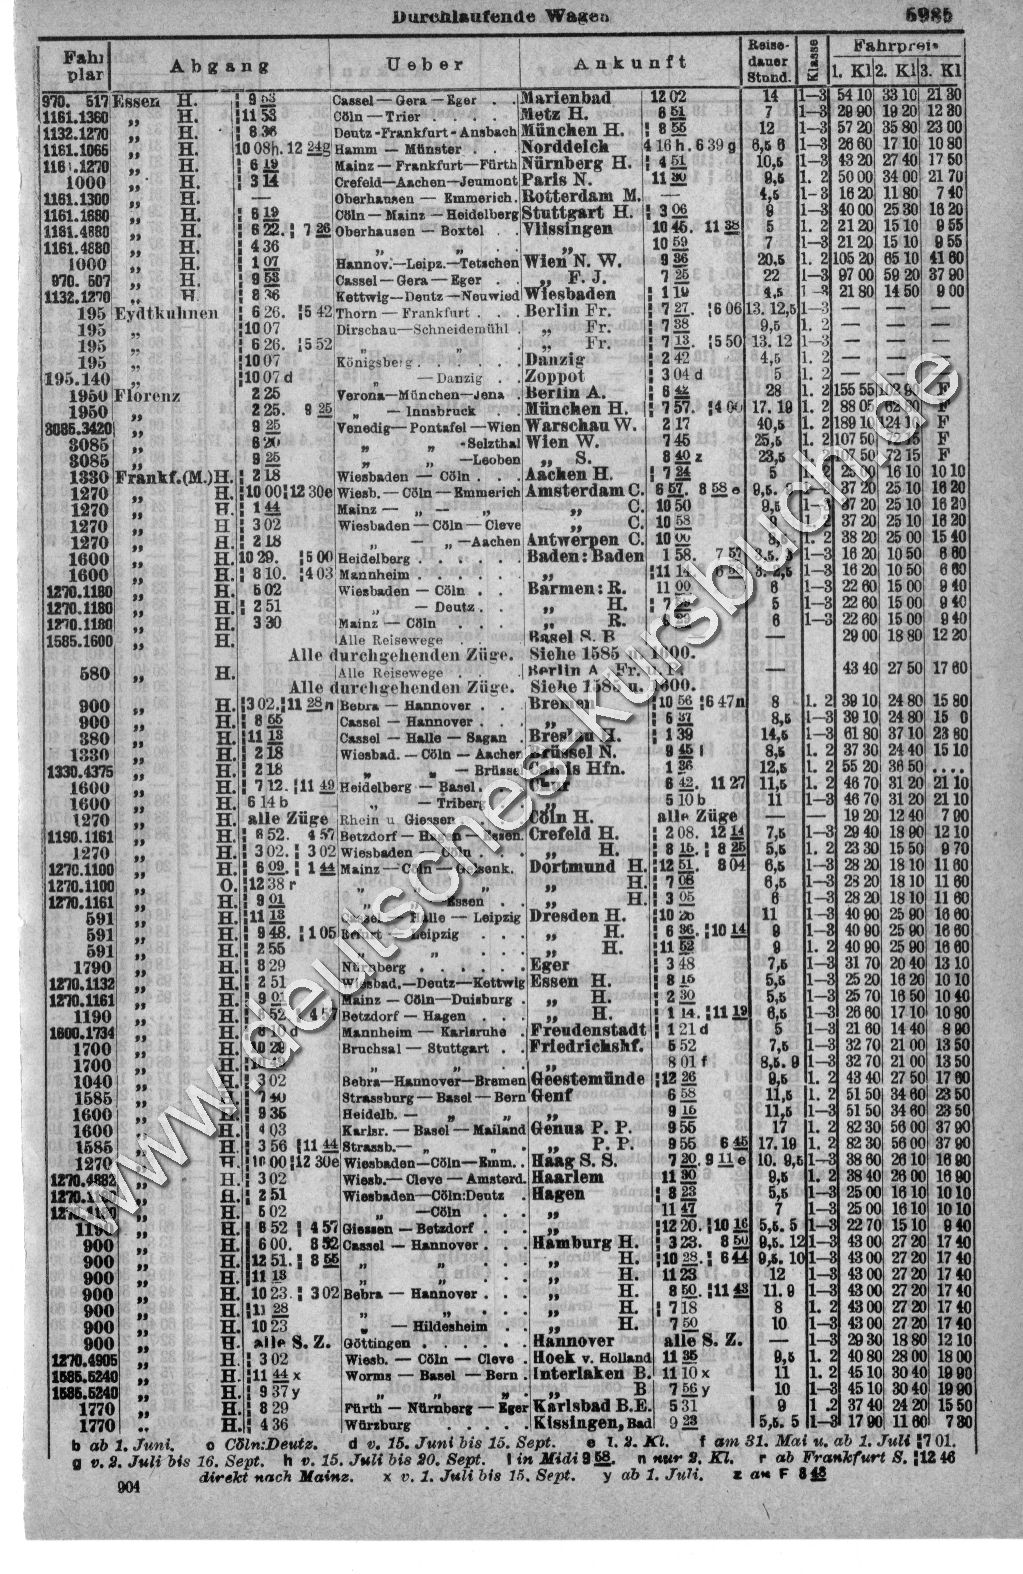 Durchlaufende Wagen 5985
Fahrplan Abgang Ueber Ankunft Reisedauer Stund. Klasse Fahrpreis 1. Kl 2. Kl 3. Kl
970. 517 Essen H. ¦ 9 53 Cassel—Gera—Eger . . Marienbad 12 02 14 1—3 54 10 33 10 21 30
1161.1360 „ H. ¦11 53 Cöln—Trier . . . . . Metz H. 6 51 7 1—3 29 90 19 20 12 30
1132.1270 „ H. ¦ 8 36 Deutz-Frankfurt-Ansbach München H. ¦ 8 55 12 1—3 57 20 35 80 23 00
1161.1065 „ H. 10 08h. 12 24g Hamm — Münster . . Norddeich 4 16 h. 6 39 g 1—3 26 60 17 10 10 80
1161.1270 „ H. ¦ 6 19 Mainz — Frankfurt—Fürth Nürnberg H. ¦ 4 51 10,5 1—3 43 20 27 40 17 50
1000 „ H. ¦ 3 14 Crefeld—Aachen—Jeumont Paris N. 11 30 9,5 1. 2 50 00 34 00 21 70
1161.1300 „ H. — Oberhausen — Emmerich. Rotterdam M. — 4,5 1—3 16 20 11 80 7 40
1161.1680 „ H. ¦ 8 19 Cöln — Mainz — Heidelberg Stuttgart H. ¦ 3 06 9 1—3 40 00 25 30 16 20
1161.4880 „ H. ¦ 6 22. ¦ 7 26 Oberhausen — Boxtel . . Vlissingen 10 46. 11 38 5 1. 2 21 20 15 10 9 55
1161.4880 „ H. ¦ 4 36 „ „ „ 10 59 7 1—3 21 20 15 10 9 55
1000 „ H. ¦ 1 07 Hannov.—Leipz.—Tetschen Wien N. W. 9 36 20,5 1. 2 105 20 65 10 41 60
970. 507 „ H. ¦ 9 53 Cassel—Gera—Eger . . „ F. J. 7 25 22 1—3 97 00 59 20 37 90
1132.1270 „ H. ¦ 8 36 Kettwig—Deutz—Neuwied Wiesbaden ¦ 1 19 4,5 1—3 21 80 14 50 9 00
195 Eydtkuhnen ¦ 6 26. ¦5 42 Thorn — Frankfurt . . . Berlin Fr. ¦ 7 27. ¦6 06 13. 12,5 1—3 — — —
195 „ ¦10 07 Dirschau—Schneidemühl . „ Fr. ¦ 7 38 9,5 1. 2 — — —
195 „ ¦ 6 26. ¦5 52 „ „ „ Fr. ¦ 7 13. ¦5 50 13. 12 1—3 — — —
195 „ ¦10 07 Königsberg . . . . . Danzig ¦ 2 42 4,5 1. 2 — — —
195.140 „ ¦10 07 d „ — Danzig . . Zoppot ¦ 3 04 d 5 1. 2 — — —
1950 Florenz 2 25 Verona—München—Jena . Berlin A. ¦ 8 42 28 1. 2 155 55 F
1950 „ 2 25. 9 25 „ — Innsbruck . . München H. ¦ 7 57. ¦4 00 17. 19 1. 2 88 05 F
3085.3420 „ 9 25 Venedig—Pontafel—Wien Warschau W. 2 17 40,5 1. 2 189 10 124 10 F
3085 „ 8 20 „ „ -Selzthal Wien W. 7 45 25,5 1. 2 107 50 72 15 F
3085 „ 9 25 „ „ —Leoben „ S. 8 40 z 23,5 1. 2 107 50 72 15 F
1330 Frankf.(M.)H. ¦ 2 18 Wiesbaden — Cöln . . . Aachen H. ¦ 7 24 5 1. 2 25 00 16 10 10 10
1270 „ H. ¦10 00¦12 30e Wiesb. — Cöln—Emmerich Amsterdam C. 6 57. 8 58 e 37 20 25 10 16 20
1270 „ H. ¦ 1 44 Mainz — „ — „ „ C. 10 50 9,5 37 20 25 10 16 20
1270 „ H. ¦ 3 02 Wiesbaden — Cöln — Cleve „ C. 10 58 9 37 20 25 10 16 20
1270 „ H. ¦ 2 18 „ — „ —Aachen Antwerpen C. 10 00 1. 2 38 20 25 00 15 40
1600 „ H. 10 29. ¦5 00 Heidelberg . . . . . Baden:Baden 1 58. 7 57 1—3 16 20 10 50 6 60
1600 „ H. ¦ 8 10. ¦4 03 Mannheim . . . . . „ ¦11 14 1—3 16 20 10 50 6 60
1270.1180 „ H. 6 02 Wiesbaden — Cöln . . Barmen:R. 11 00 6 1—3 22 60 15 00 9 40
1270.1180 „ H. ¦ 2 51 „ — Deutz . . „ H. 5 1—3 22 60 15 00 9 40
1270.1180 „ H. 3 30 Mainz — Cöln . . . „ R. 6 1—3 22 60 15 00 9 40
1585.1600 „ H. Alle Reisewege . . Basel S. B — 29 00 18 80 12 20
Alle durchgehenden Züge. Siehe 1585 u. 1600.
580 „ H. Alle Reisewege . . Berlin A — 43 40 27 50 17 60
Alle durchgehenden Züge. Siehe 1585 u. 1600.
900 „ H. ¦3 02.¦11 28n Bebra — Hannover . . . Bremen ¦10 56 ¦6 47n 8 1. 2 39 10 24 80 15 80
900 „ H. ¦ 8 55 Cassel — Hannover . . . „ ¦ 6 37 8,5 1—3 39 10 24 80
380 „ H. ¦11 13 Cassel — Halle — Sagan . Breslau H. ¦ 1 39 14,5 1—3 61 80 37 10 23 80
1330 „ H. ¦ 2 18 Wiesbad. — Cöln — Aachen Brüssel N. 9 45 l 8,5 1. 2 37 30 24 40 15 10
1330.4375 „ H. ¦ 2 18 „ „ — Brüssel Hfn. 1 36 12,5 1. 2 55 20 36 50 ....
1600 „ H. ¦ 7 12. ¦11 49 Heidelberg — Basel . 6 42. 11 27 11,5 1. 2 46 70 31 20 21 10
1600 „ H. 6 14 b „ — Triberg „ 5 10 b 11 1—3 46 70 31 20 21 10
1270 „ H. alle Züge Rhein u Giessen Cöln H. alle Züge — — 19 20 12 40 7 90
1190.1161 „ H. ¦ 8 52. 4 57 Betzdorf — Hagen — Essen. Crefeld H. ¦ 2 08. 12 14 7,5 1—3 29 40 18 90 12 10
1270 „ H. ¦ 3 02. ¦ 3 02 Wiesbaden — Cöln . . . „ H. ¦ 8 15. ¦ 8 25 5,5 1—3 23 30 15 50 9 70
1270.1100 „ H. ¦ 6 09. ¦ 1 44 Mainz — Cöln — Gelsenk. Dortmund H. ¦12 51. 8 04 6,5 1—3 28 20 18 10 11 60
1270.1100 „ O. ¦12 38 r „ „ „ „ H. ¦ 7 06 6,5 1—3 28 20 18 10 11 60
1270.1161 „ H. ¦ 9 01 „ „ Essen . . „ H. ¦ 3 05 6 1—3 28 20 18 10 11 60
591 „ H. ¦11 13 Cassel — Halle — Leipzig Dresden H. ¦10 26 11 1—3 40 90 25 90 16 60
591 „ H. ¦ 9 48. ¦1 05 Erfurt — Leipzig . . . „ H. ¦ 6 36. ¦10 14 9 1—3 40 90 25 90 16 60
591 „ H. ¦ 2 55 „ H. ¦11 52 9 1. 2 40 90 25 90 16 60
1790 „ H. ¦ 8 29 Nürnberg . . . . . Eger ¦ 3 48 7,5 1—3 31 70 20 40 13 10
1270.1132 „ H. ¦ 2 51 Wiesbad.—Deutz—Kettwig Essen H. ¦ 8 16 5,5 1—3 25 20 16 20 10 10
1270.1161 „ H. ¦ 9 01 Mainz — Cöln—Duisburg . „ H. ¦ 2 30 5,5 1—3 25 70 16 50 10 40
1190 „ H. ¦ 8 52 ¦ 4 57 Betzdorf — Hagen . . . „ H. ¦ 1 14. ¦11 19 6,5 1—3 26 60 17 10 10 80
1600.1734 „ H. ¦ 8 10 d Mannheim — Karlsruhe . Freudenstadt ¦ 1 21 d 5 1—3 21 60 14 40 8 90
1700 „ H. ¦10 29 Bruchsal — Stuttgart . . Friedrichshf. 5 52 7 1—3 32 70 21 00 13 50
1700 „ H. „ „ „ 8 01 f 8,5. 9 1—3 32 70 21 00 13 50
1040 „ H. ¦ 3 02 Bebra—Hannover—Bremen Geestemünde ¦12 26 9,5 1. 2 43 40 27 50 17 60
1585 „ H. ¦ 7 40 Strassburg — Basel — Bern Genf 6 58 11,5 1. 2 51 50 34 60 23 50
1600 „ H. ¦ 9 35 Heidelb. — „ „ „ 9 16 11,5 1—3 51 50 34 60 23 50
1600 „ H. ¦ 4 03 Karlsr. — Basel — Mailand Genua P. P. 9 55 17 1. 2 82 30 56 00 37 90
1585 „ H. ¦ 3 56 ¦11 44 Strassb.— „ „ „ P. P. 9 55 6 45 17. 19 1. 2 82 30 56 00 37 90
1270 „ H. ¦10 00¦12 30e Wiesbaden—Cöln—Emm. . Haag S. S. 7 20. 9 11 e 10. 9,5 1—3 38 60 26 10 16 90
1270.4882 „ H. ¦ 3 02 Wiesb.— Cleve — Amsterd. Haarlem 11 30 9,5 1. 2 38 40 26 00 16 90
„ H. ¦ 2 51 Wiesbaden—Cöln:Deutz . Hagen ¦ 8 23 5,5 1—3 25 00 16 10 10 10
„ H. 5 02 „ —Cöln . . . „ 11 47 7 1—3 25 00 16 10 10 10
1190 „ H. ¦ 8 52 ¦ 4 57 Giessen — Betzdorf . . . „ ¦12 20. ¦10 16 5,5. 5 1—3 22 70 15 10 9 40
900 „ H. ¦ 6 00. 8 32 Cassel — Hannover . . . Hamburg H. ¦ 3 23. 8 50 9,5. 12 1—3 43 00 27 20 17 40
900 „ H. ¦12 51. ¦ 8 55 „ „ „ H. ¦10 28. ¦ 6 44 9,5. 10 1—3 43 00 27 20 17 40
900 „ H. ¦11 13 „ „ „ H. 11 23 12 1—3 43 00 27 20 17 40
900 „ H. 10 23. ¦ 3 02 Bebra — Hannover . . . „ H. ¦ 8 50. ¦11 43 11. 9 1—3 43 00 27 20 17 40
900 „ H. ¦11 28 „ „ „ H. ¦ 7 18 8 1. 2 43 00 27 20 17 40
900 „ H. 10 23 „ — Hildesheim . . „ H. 7 50 10 1—3 43 00 27 20 17 40
900 „ H. alle S. Z. Göttingen . . . . . Hannover alle S. Z. — 1—3 29 30 18 80 12 10
1270.4905 „ H. ¦ 3 02 Wiesb. — Cöln — Cleve . Hoek v. Holland 11 35 9,5 1. 2 40 80 28 00 18 00
1585.5240 „ H. ¦11 44 x Worms — Basel — Bern . Interlaken B. 11 10 x 11 1. 2 45 10 30 40 19 90
1585.5240 „ H. ¦ 9 37 y „ „ „ „ B 7 56 y 10 1—3 45 10 30 40 19 90
1770 „ H. ¦ 8 29 Fürth — Nürnberg — Eger Karlsbad B.E. 5 31 9 1 .2 37 40 24 20 15 50
1770 „ H. ¦ 4 36 Würzburg . . . . Kissingen, Bad 9 23 5,5. 5 1—3 17 90 11 60 7 30
b ab 1. Juni. o Cöln:Deutz. d v. 15. Juni bis 15. Sept. e l. 2. Kl. f am 31. Mai u. ab 1. Juli ¦7 01.
g v. 2. Juli bis 16. Sept. h v. 15. Juli bis 20. Sept. l in Midi 9 58. n nur 2. Kl. r ab Frankfurt S. ¦12 46
direkt nach Mainz. x v. 1. Juli bis 15. Sept. y ab 1. Juli. z an F 8 48
904
www.deutsches-kursbuch.de